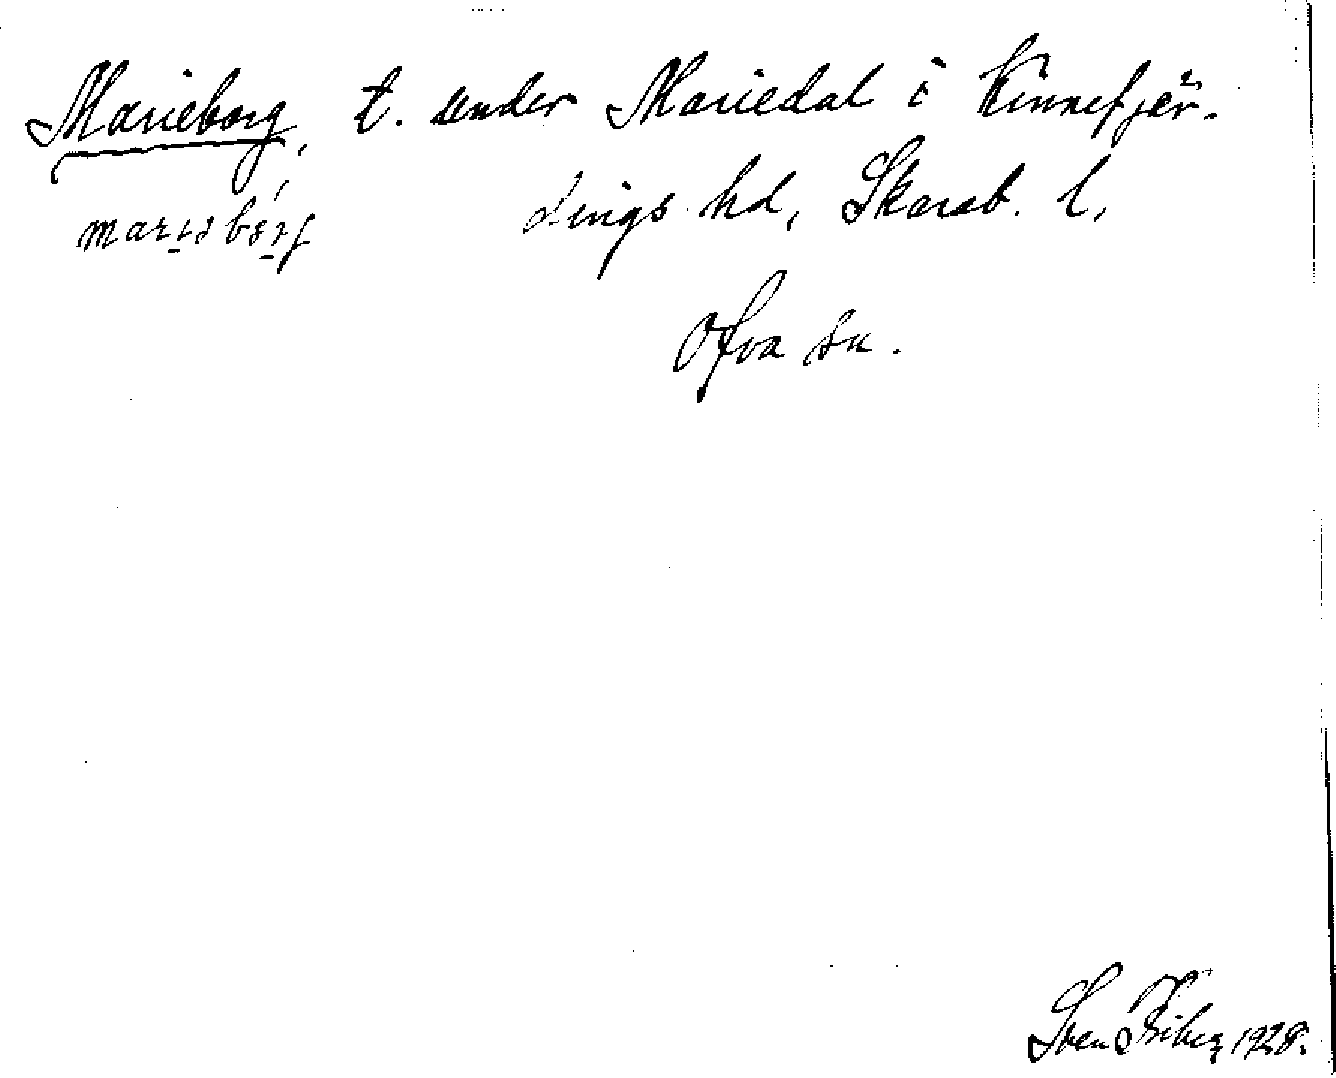 Marieborg, t. under Mariedal i Kinnefjär-
dings hd, Skarab. l,
Ova sn.
Sven Friberg 1928.